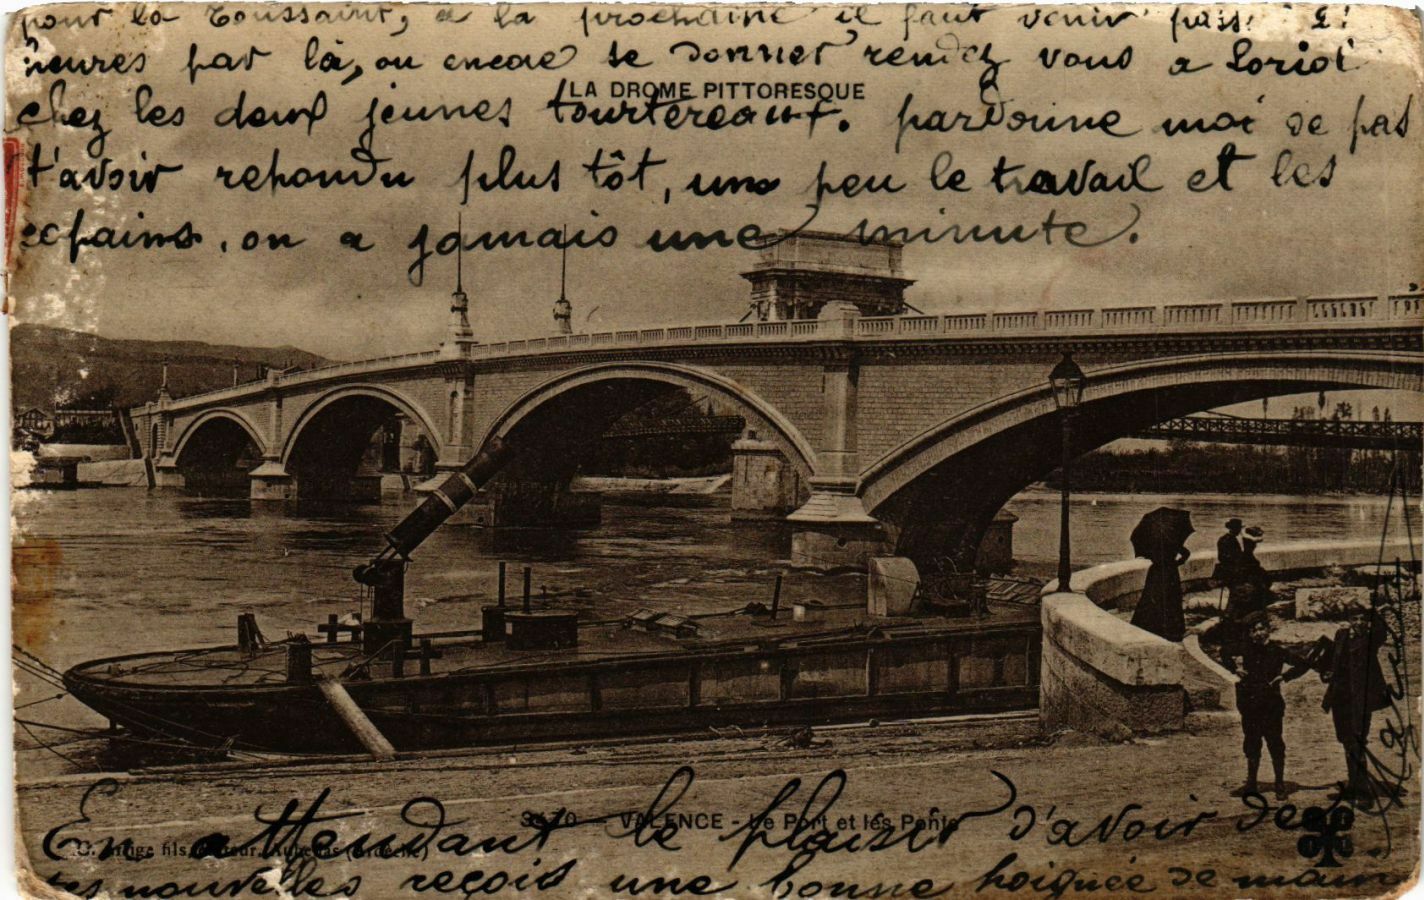 pour la Toussaint, a la prochaine il faut venir pass
heures par là, ou encore se donner rendez vous a Loriol
LA DROME PITTORESQUE
chez les deux jeunes tourtereaux. pardonne moi de pas
t'avoir repondu plus tôt, un peu le travail et les
copains, on a jamais une minute.
En attendant le plaisir d'avoir de
VALENCE - Le Port et les Ponts
fils, (Ardèche)
tes nouvelles reçois une bonne poignée de main